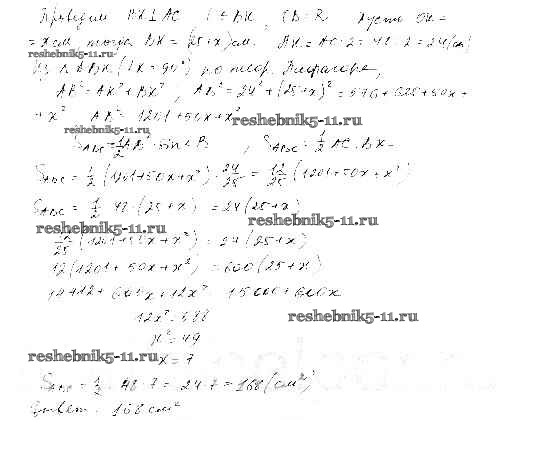 Проведем BK ⊥ AC OB = R Пусть OK =
= x см, тогда BK = (25+x) см. AK = AC : 2 = 48 : 2 = 24 (см)
reshebnik5-11.ru
Из △ABK (∠K = 90°) по теор. Пифагора,
AB² = AK² + BK², AB² = 24² + (25+x)² = 576 + 625 + 50x +
+ x² AB² = 1201 + 50x + x²
reshebnik5-11.ru
reshebnik5-11.ru
S_ABC = 1/2 AB² · sin∠B, S_ABC = 1/2 AC · BK =
S_ABC = 1/2 (1201+50x+x²) · 24/25 = 12/25 (1201+50x+x²)
S_ABC = 1/2 · 48 · (25+x) = 24(25+x)
reshebnik5-11.ru
reshebnik5-11.ru
12/25 (1201+50x+x²) = 24(25+x)
12(1201+50x+x²) = 600(25+x)
14412 + 600x + 12x² = 15000 + 600x
12x² = 588
reshebnik5-11.ru
x² = 49
reshebnik5-11.ru
x = 7
S_ABC = 1/2 · 48 · 7 = 24 · 7 = 168 (см²)
Ответ: 168 см²